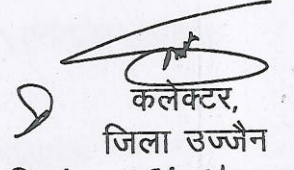 कलेक्टर,
जिला उज्जैन